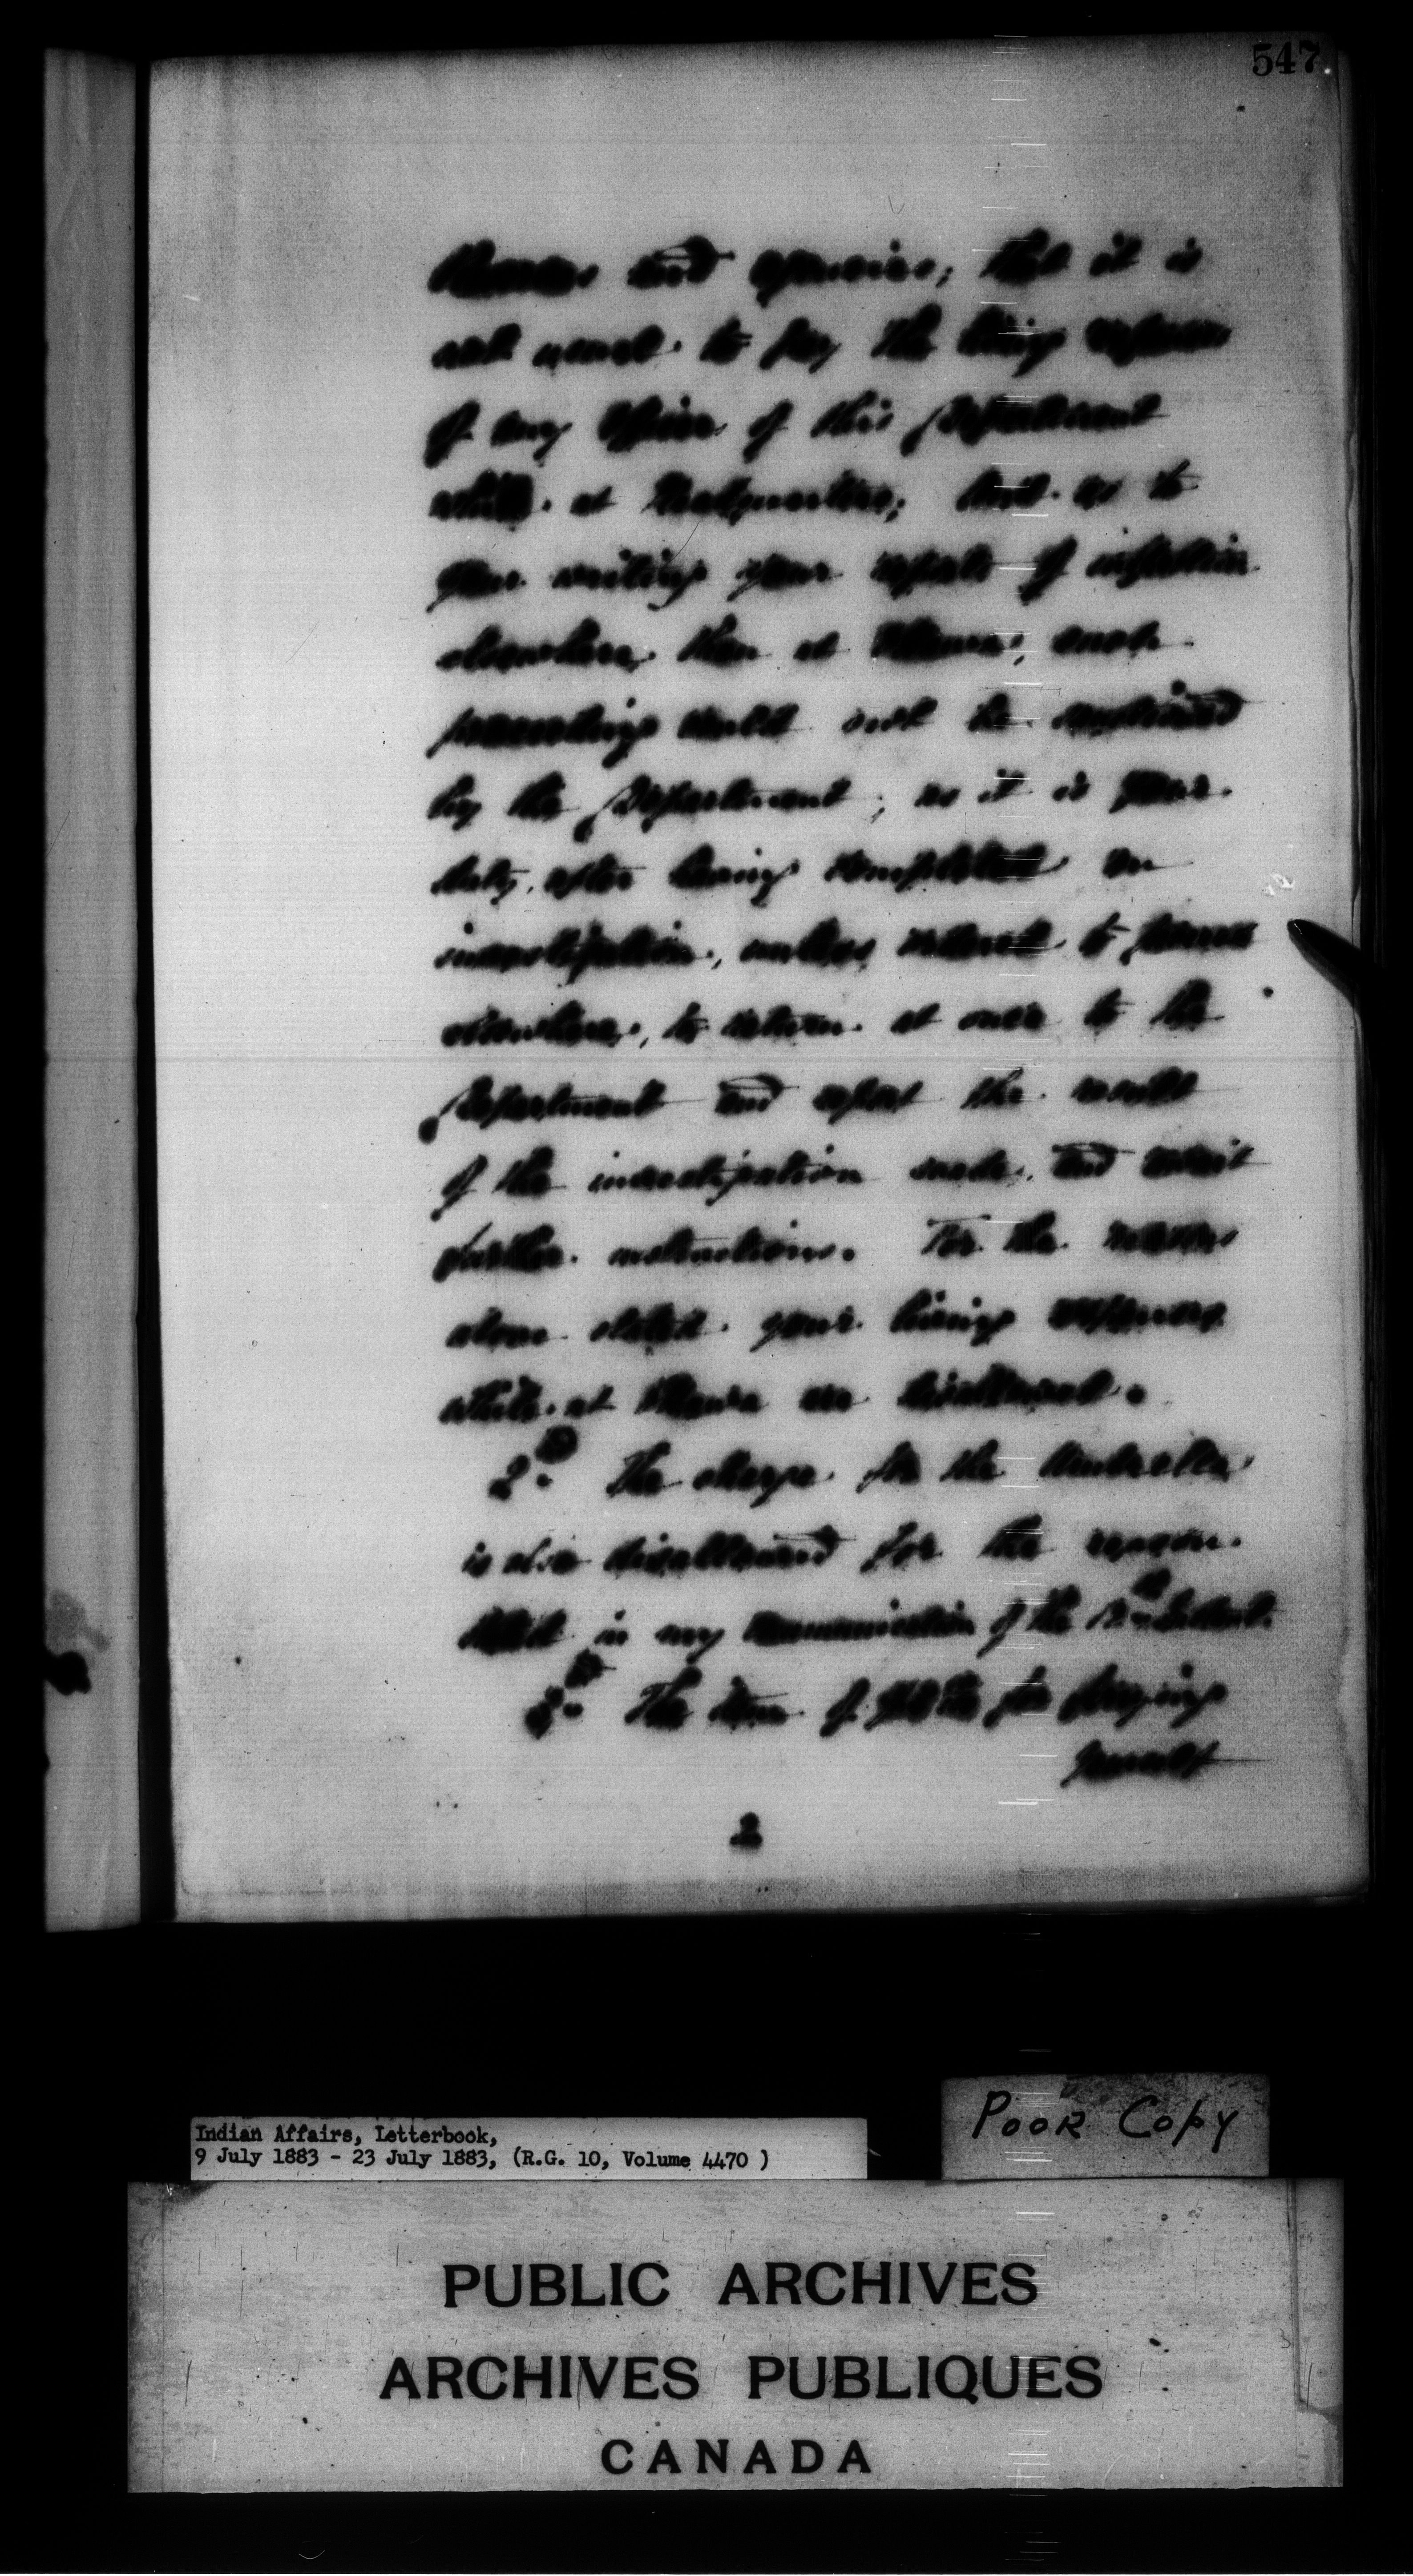 547
and agencies; that it is
not usual to pay the living expenses
of any Officer of this Department
while at Headquarters; and as to
your writing your reports of inspection
elsewhere than at Ottawa, such
proceedings would not be sanctioned
by the Department, as it is your
duty, after having completed an
investigation, unless ordered to proceed
elsewhere, to return at once to the
Department and report the result
of the investigation made, and await
further instructions. For the reasons
above stated your living expenses
while at Ottawa are disallowed.
2nd The charge for the Umbrella
is also disallowed for the reason
stated in my communication of the
The item of for
2
Indian Affairs, Letterbook,
9 July 1883 - 23 July 1883, (R.G. 10, Volume 4470 )
Poor Copy
PUBLIC ARCHIVES
ARCHIVES PUBLIQUES
CANADA